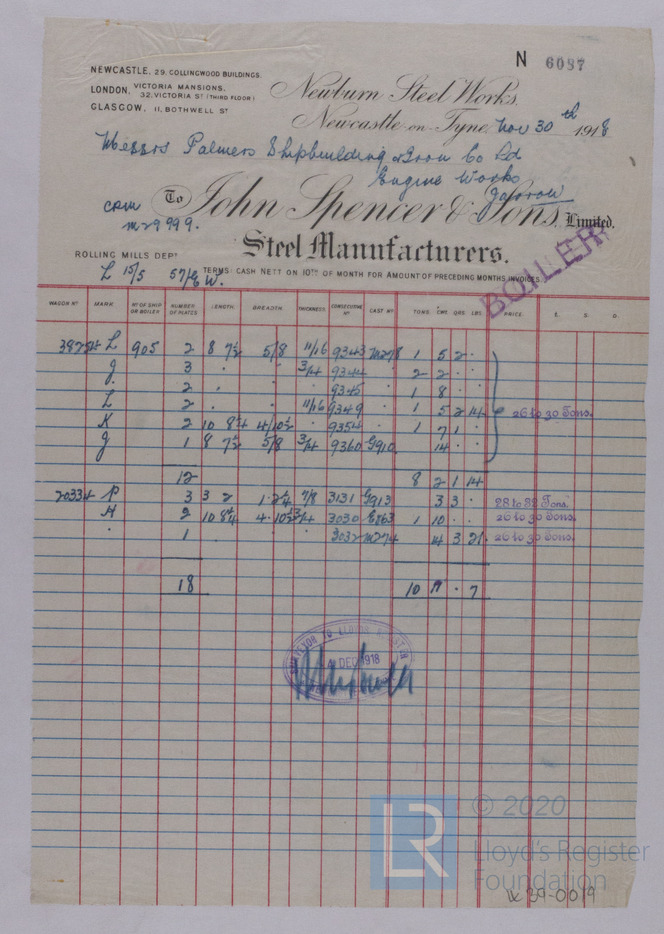 N 6097
NEWCASTLE, 29, COLLINGWOOD BUILDINGS.
LONDON, VICTORIA MANSIONS, 32, VICTORIA ST (THIRD FLOOR)
GLASGOW, 11, BOTHWELL ST
Newburn Steel Works.
Newcastle-on-Tyne, Nov 30th 1918
Messrs Palmers Shipbuilding & Iron Co Ld
Engine Works
Jarrow
To John Spencer & Sons, Limited.
M29999.
Steel Manufacturers.
ROLLING MILLS DEPT
BOILER
L 15/5 W.
TERMS: CASH NETT ON 10TH OF MONTH FOR AMOUNT OF PRECEDING MONTHS INVOICES.
WAGON NO MARK NO OF SHIP OR BOILER NUMBER OF PLATES LENGTH BREADTH THICKNESS CONSECUTIVE NO CAST NO TONS. CWT. QRS. LBS. PRICE. £. S. D.
L 905 2 8 7½ 5/8 11/16 9343 M278 1 5 2 ·
J 3 · · 3/4 9344 2 2 · ·
· 2 · · · 9345 1 8 · ·
L 2 · · 11/16 9349 · 1 5 2 14 26 to 30 Tons.
K 2 10 8¼ 4/10½ · 9354 · 1 7 1 ·
J 1 8 7½ 5/8 3/4 9360 G910 14 · ·
12 8 2 1 14
20334 P 3 3 2 1·2¼ 7/8 3131 G913 3 3 · 28 to 32 Tons.
H 2 10 8¼ 4·10½ 3/4 3030 E863 1 10 · · 26 to 30 Tons.
· 1 3032 M274 14 3 21 26 to 30 Tons.
18 10 11 · 7
SURVEYOR TO LLOYD'S REGISTER
DEC 1918
LR
© 2020
Lloyd's Register
Foundation
W39-0019